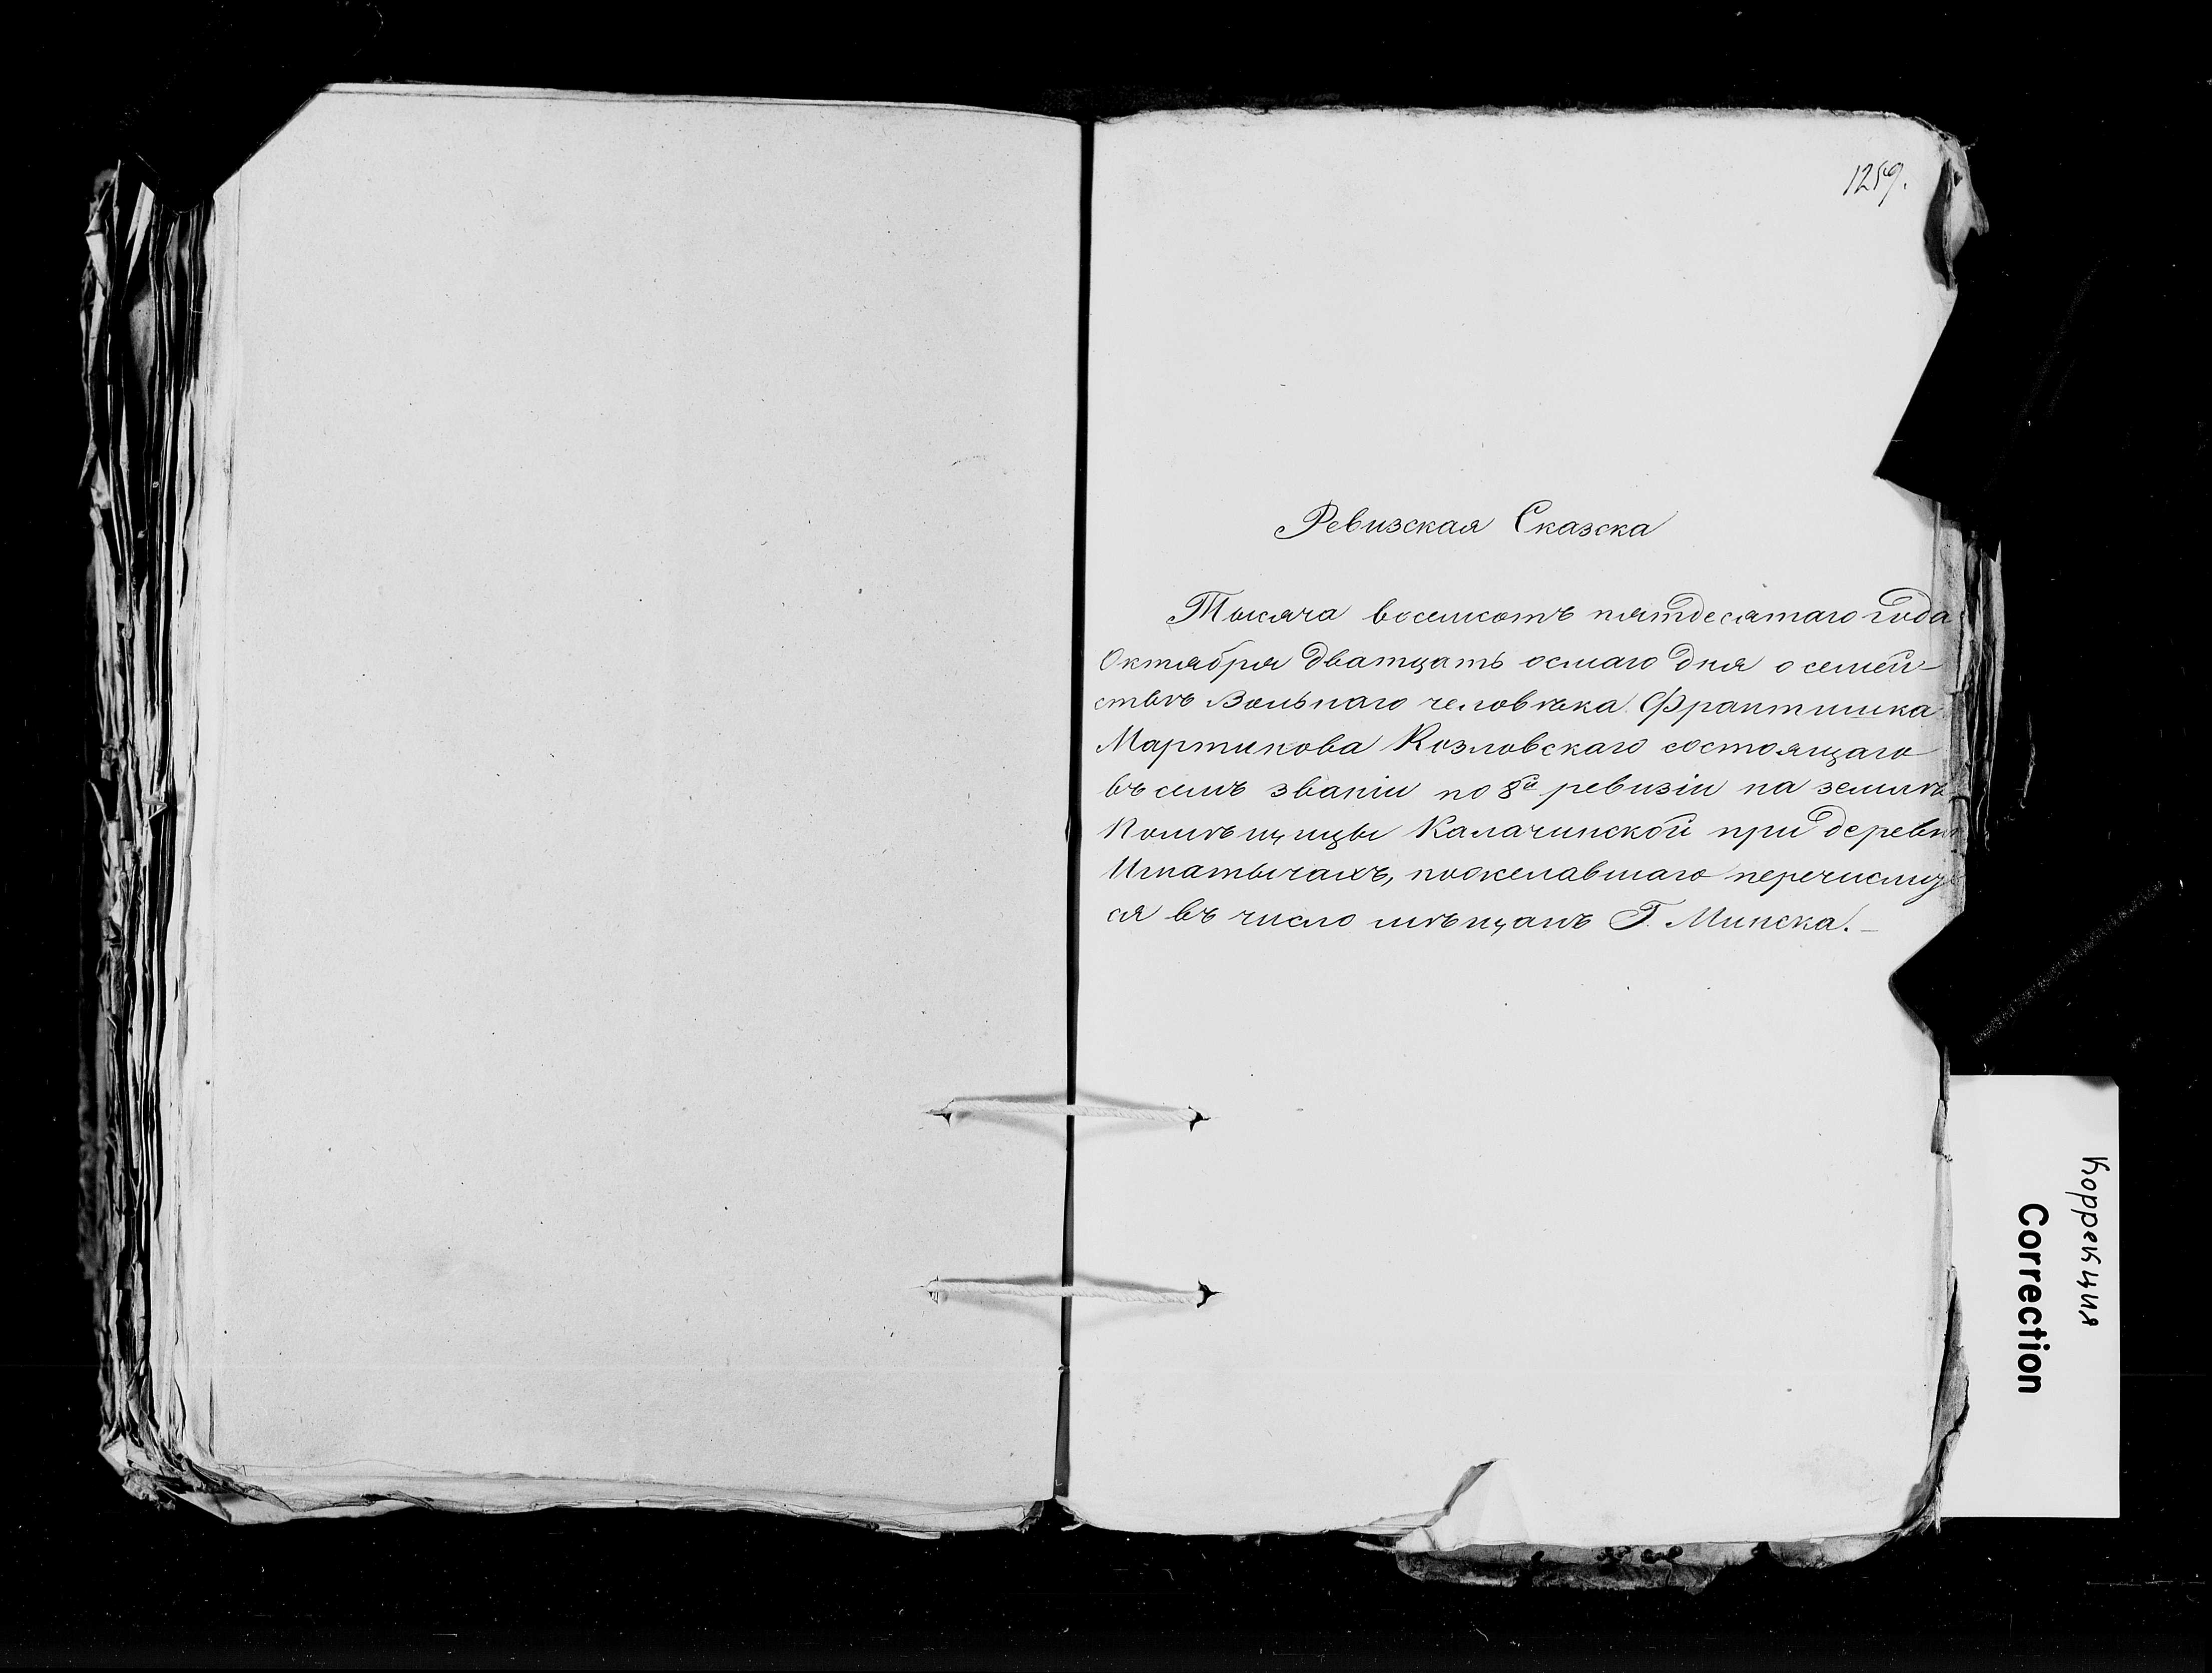 1259.
Ревизская Сказска
Тысяча восемсотъ пятдесятаго года
Октября дватцать осмаго дня о семей-
ствѣ Вольнаго человѣка Франтишка
Мартинова Козловскаго состоящаго
въ семъ званіи по 8й ревизіи на землѣ
Помѣщицы Калачинской при деревн
Игнатычахъ, пожелавшаго перечислит
ся въ число мѣщанъ Г. Минска.-
Коррекция
Correction